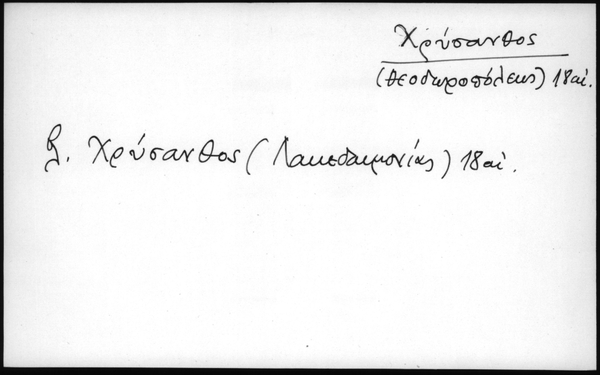 Χρύσανθος
(Θεοδωροπόλεως) 18 αἰ.
βλ. Χρύσανθος (Λακεδαιμονίας) 18 αἰ.